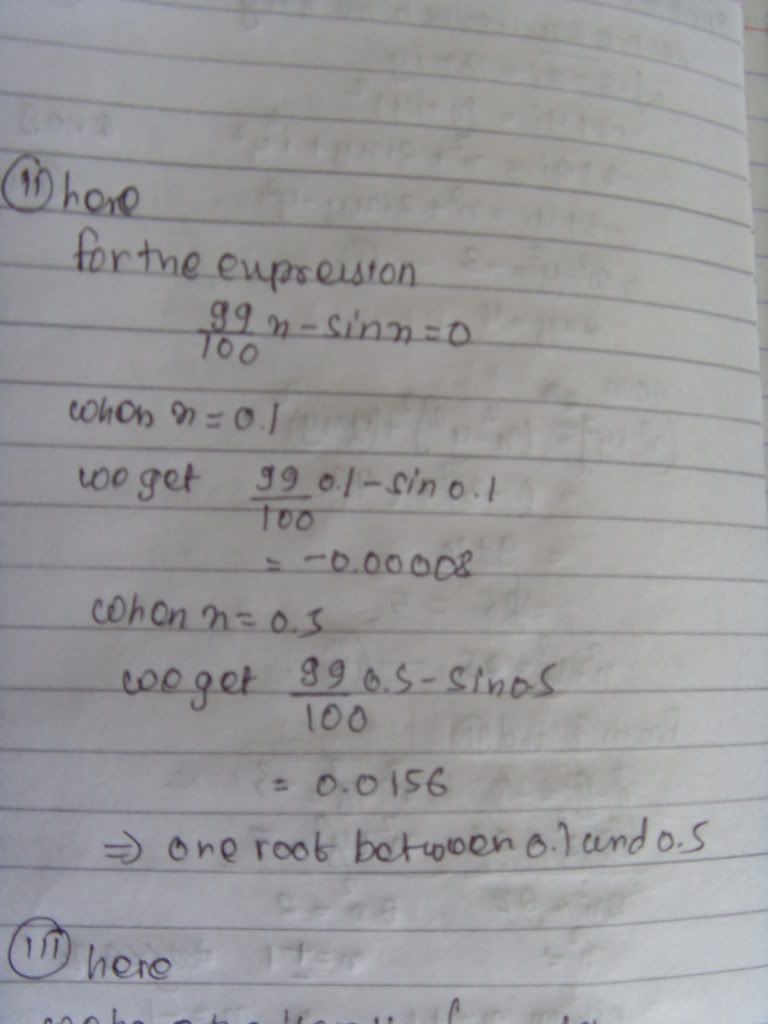 (ii) here
for the expression
99/100 x - sin x = 0
when x = 0.1
we get 99/100 0.1 - sin 0.1
= -0.00008
when x = 0.5
we get 99/100 0.5 - sin 0.5
= 0.0156
⇒ one root between 0.1 and 0.5
(iii) here